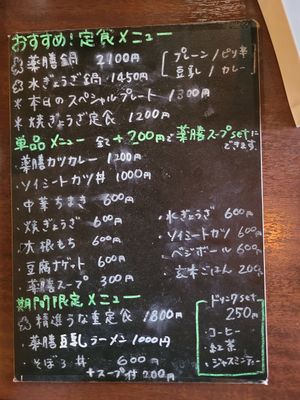 おすすめ!定食メニュー
薬膳鍋 2100円 [プレーン/ピリ辛
水ぎょうざ鍋 1450円 豆乳/カレー]
* 本日のスペシャルプレート 1300円
* 焼ぎょうざ定食 1200円
単品メニュー 全て+200円で薬膳スープsetにできます。
・薬膳カツカレー 1200円
・ソイミートカツ丼 1000円
・中華ちまき 600円
・焼ぎょうざ 600円
・大根もち 600円
・豆腐ナゲット 600円
・薬膳スープ 300円
・水ぎょうざ 600円
・ソイミートカツ 600円
・ベジボール 600円
・玄米ごはん 200円
期間限定メニュー
精進うな重定食 1800円
・薬膳豆乳ラーメン 1000円
・そぼろ丼 600円
+スープ付 200円
ドリンクset
250円
・コーヒー
・紅茶
・ジャスミンティー